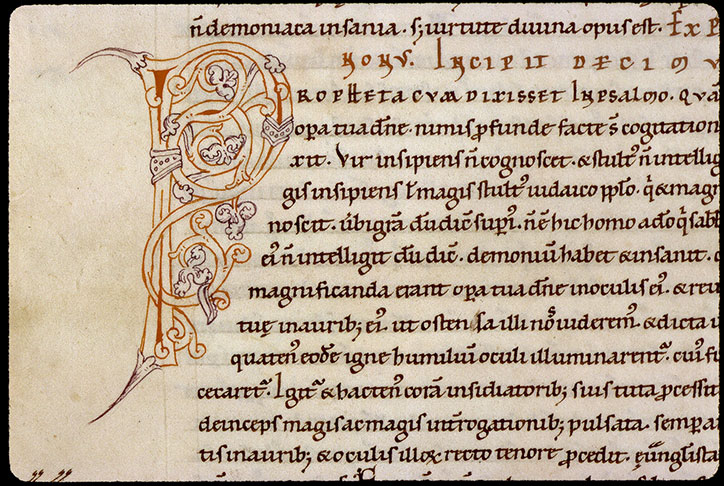 n̄ demoniaca insania. s; uirtute diuina opus est. Exp
NONVS. INCIPIT DECIMV
PROPHETA CVM DIXISSET IN PSALMO. QVA
opera tua dn̄e. nimis ꝓfunde facte s̄ cogitation
xit. Vir insipiens n̄ cognoscet. & stultꝰ n̄ intellig
gis insipiens ł magis stultꝰ iudaico pplo. q̇ & magn
noscit. ubi gr̄a dūi dic̄ supi. n̄ ē hic homo a do q̇ sabb
ei n̄ intelligit dū dic̄. demoniū habet & insanit.
magnificanda erant opera tua dn̄e in oculis eiꝰ. & reu
tuę in aurib; eiꝰ. ut ostensa illi nos uideremꝰ. & dicta
quatenꝰ eodē igne humiliū oculi illuminarentᷣ. cui fu
cecaretᷣ. Igitᷣ & hactenꝰ corā insidiatorib; suis tuta ꝓcessit
deinceps magis ac magis interrogationib; pulsata. semp a
tis in aurib; & oculis illoꝝ recto tenore ꝓcedit. euglista